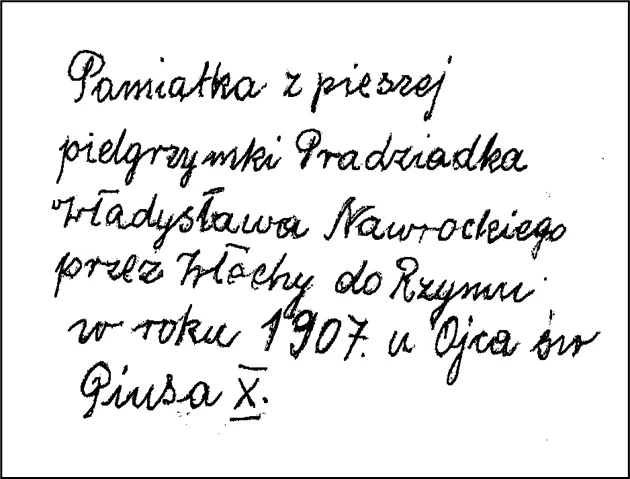 Pamiątka z pieszej
pielgrzymki Pradziadka
Władysława Nawrockiego
przez Włochy do Rzymu
w roku 1907. u Ojca św
Piusa X.